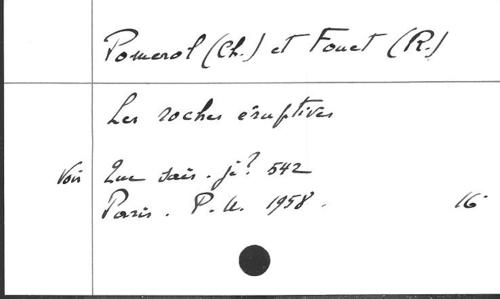 Pomerol (Ch.) et Fouet (R.)
Les roches éruptives
Voir Que sais-je? 542
Paris. P. U. 1958. 16